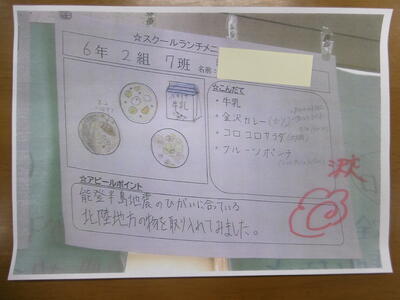 ☆スクールランチメニ
6年 2組 7班
名前:
牛乳
☆こんだて
・牛乳
・金沢カレー
・コロコロサラダ
・フルーツポンチ
☆アピールポイント
能登半島地震のひがいに合っている
北陸地方の物を取り入れてみました。